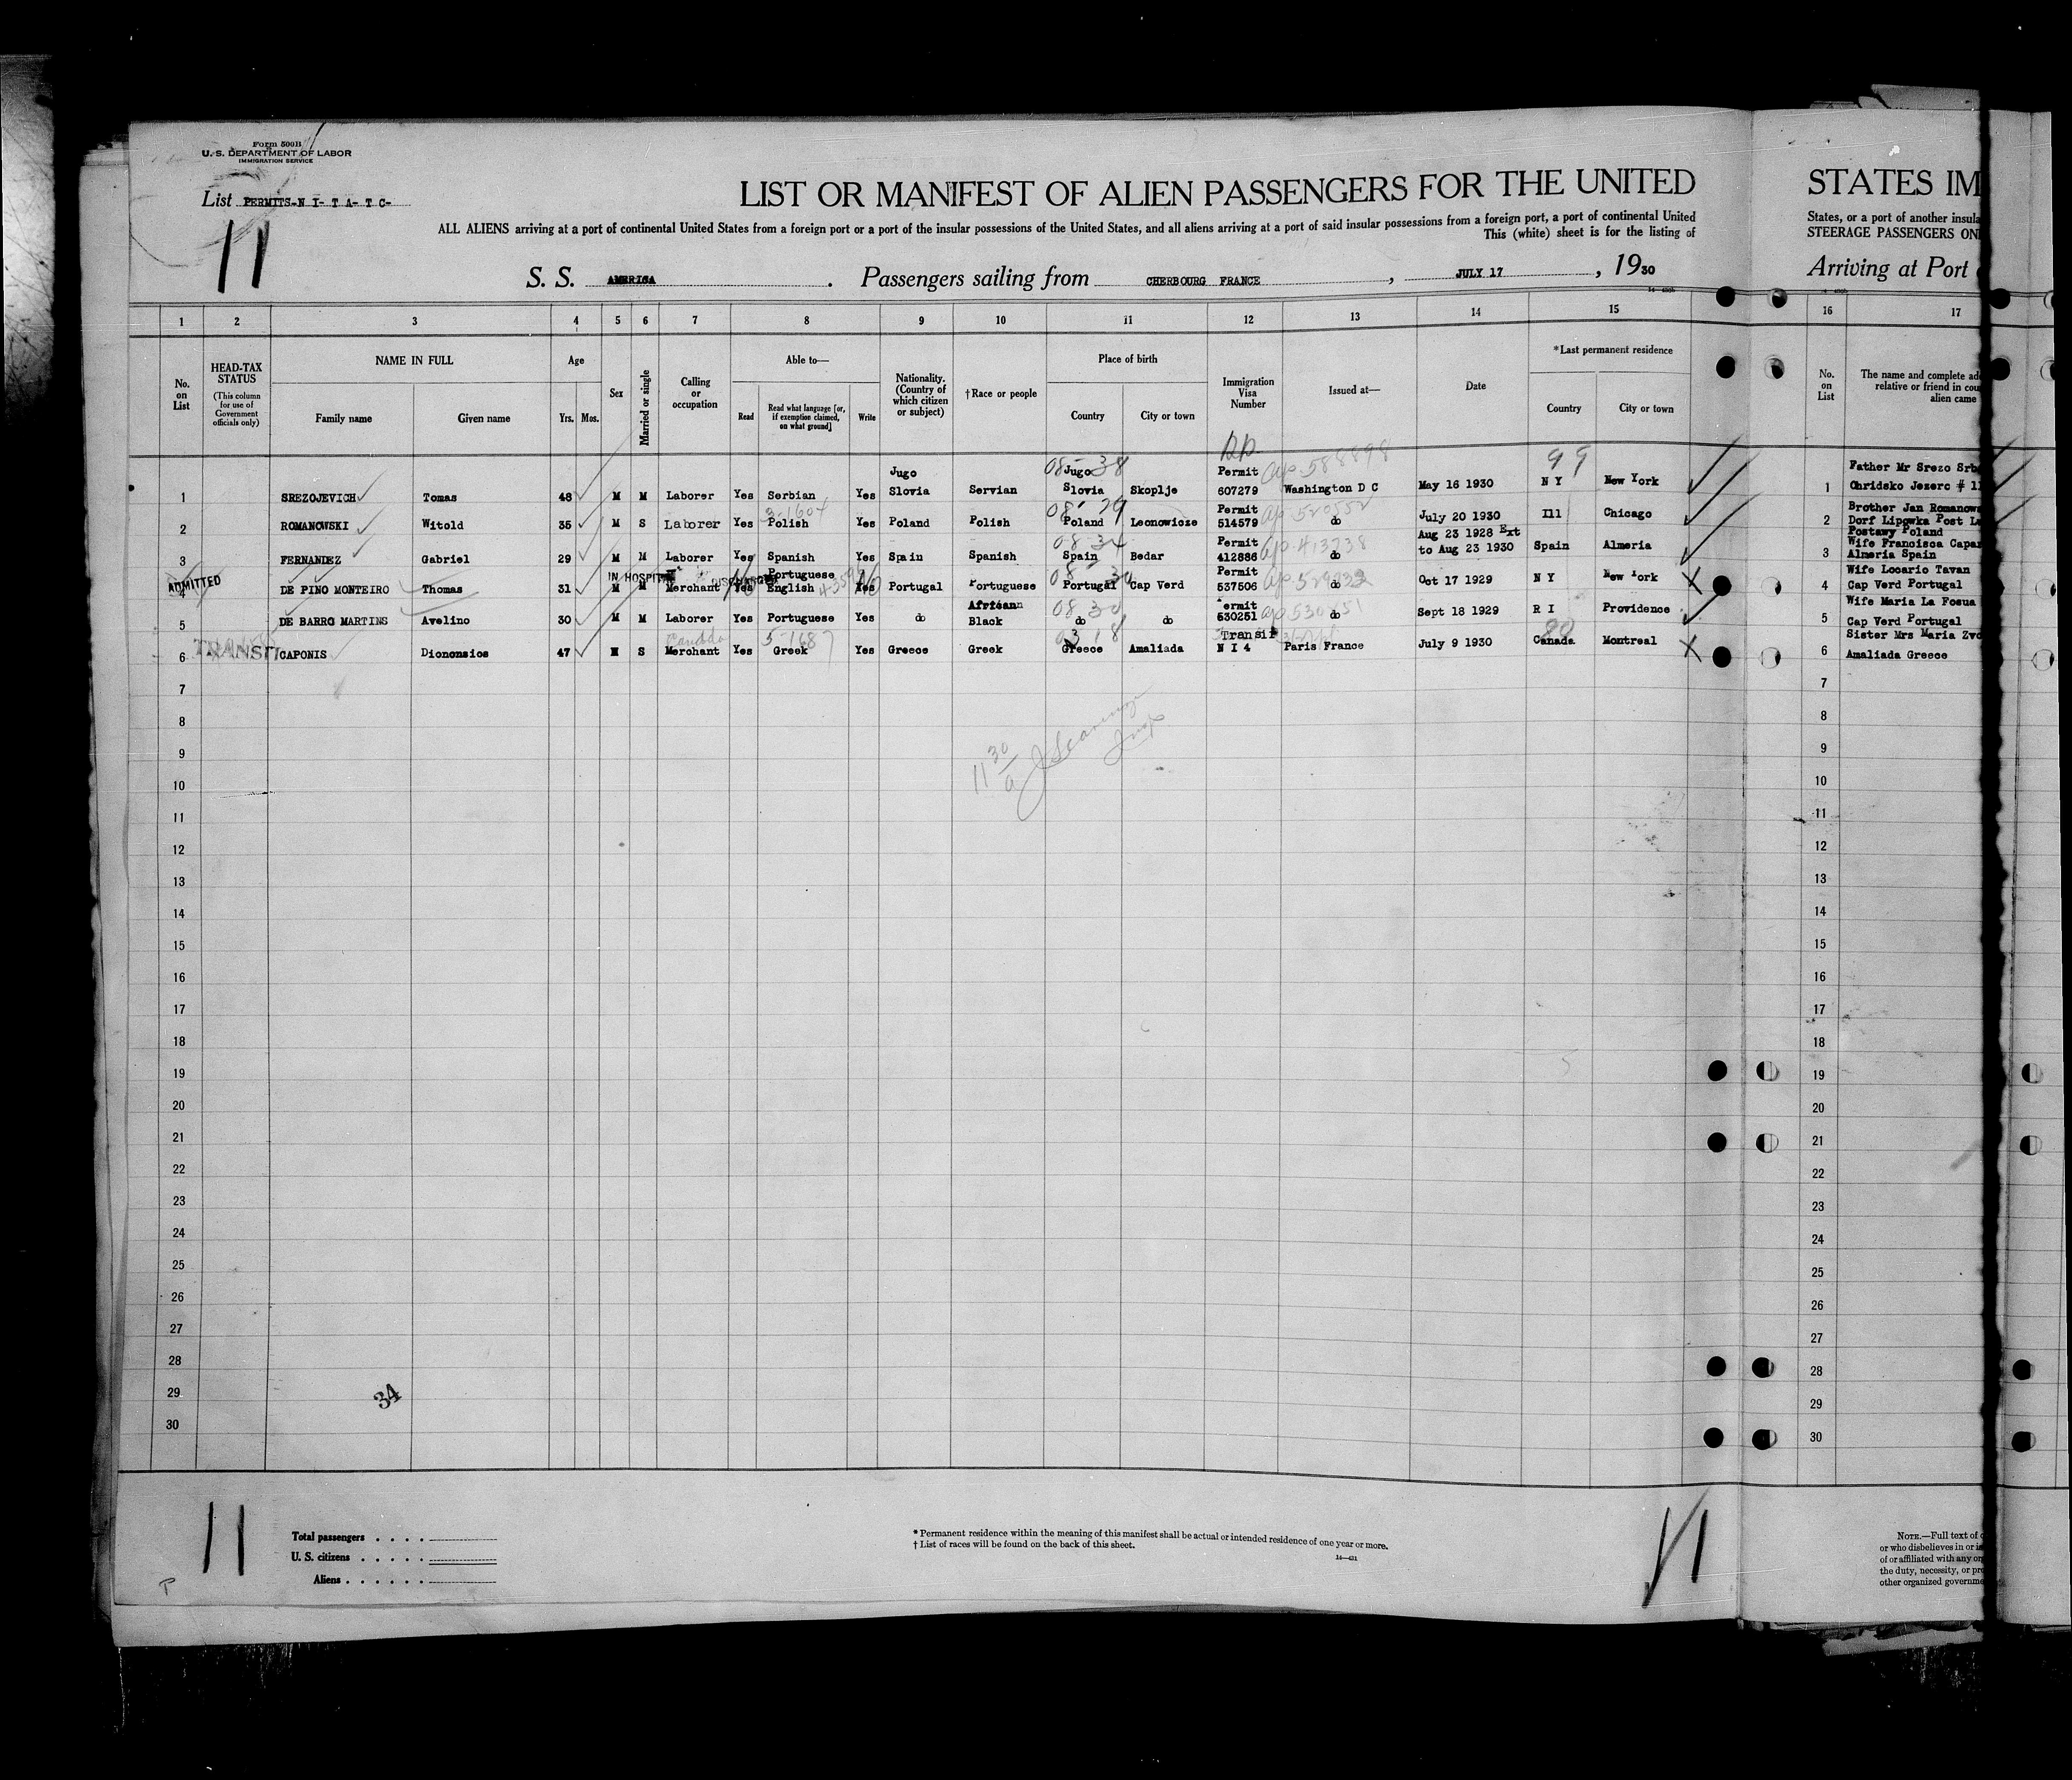 Form 500B
U. S. DEPARTMENT OF LABOR
IMMIGRATION SERVICE
List PERMITS-N I- T A- T C-
11
LIST OR MANIFEST OF ALIEN PASSENGERS FOR THE UNITED
ALL ALIENS arriving at a port of continental United States from a foreign port or a port of the insular possessions of the United States, and all aliens arriving at a port of said insular possessions from a foreign port, a port of continental United
This (white) sheet is for the listing of
S. S. AMERICA. Passengers sailing from CHERBOURG FRANCE, JULY 17, 1930
STATES IM
States, or a port of another insula
STEERAGE PASSENGERS ON
Arriving at Port
1 2 3 4 5 6 7 8 9 10 11 12 13 14 15 16 17
No. on List
HEAD-TAX STATUS (This column for use of Government officials only)
NAME IN FULL
Family name Given name
Age
Yrs. Mos.
Sex
Married or single
Calling or occupation
Able to—
Read Read what language [or, if exemption claimed, on what ground] Write
Nationality. (Country of which citizen or subject)
†Race or people
Place of birth
Country City or town
Immigration Visa Number
Issued at—
Date
*Last permanent residence
Country City or town
No. on List
The name and complete ad
relative or friend in cou
alien came
99
1 SREZOJEVICH Tomas 48 M M Laborer Yes Serbian Yes Jugo Slovia Servian Jugo Slovia Skoplje Permit 607279 Washington D C May 16 1930 N Y New York 1 Father Mr Srezo Srb
Ohridsko Jezero # 1
08-38 ap 588898
2 ROMANOWSKI Witold 35 M S Laborer Yes Polish Yes Poland Polish Poland Leonowicze Permit 514579 do July 20 1930 Ill Chicago 2 Brother Jan Romanows
Dorf Lipowka Post
Postawy Poland
3-1604 08-29 ap 520552
3 FERNANDEZ Gabriel 29 M M Laborer Yes Spanish Yes Spain Spanish Spain Bedar Permit 412886 do Aug 23 1928 Ext to Aug 23 1930 Spain Almeria 3 Wife Francisca Capa
Almeria Spain
08 34 ap 413738
ADMITTED
IN HOSPITAL DISCHARGED
4 DE PINO MONTEIRO Thomas 31 M M Merchant Yes Portuguese English Yes Portugal Portuguese Portugal Cap Verd Permit 537506 do Oct 17 1929 N Y New York 4 Wife Locario Tavan
Cap Verd Portugal
08-30
5 DE BARRO MARTINS Avelino 30 M M Laborer Yes Portuguese Yes do African Black do do Permit 530251 do Sept 18 1929 R I Providence 5 Wife Maria La Fosua
Cap Verd Portugal
08 30
TRANSIT
6 CAPONIS Dionensios 47 M S Merchant Yes Greek Yes Greece Greek Greece Amaliada Transit N I 4 Paris France July 9 1930 Canada Montreal 6 Sister Mrs Maria Zvo
Amaliada Greece
Canada 5-1687 0318
7 7
8 8
9 9
10 10
11 30
a
Insp
11 11
12 12
13 13
14 14
15 15
16 16
17 17
18 18
19 19
20 20
21 21
22 22
23 23
24 24
25 25
26 26
27 27
28 28
29 29
34
30 30
11
11
Total passengers . . . .
U. S. citizens . . . . .
Aliens . . . . . .
* Permanent residence within the meaning of this manifest shall be actual or intended residence of one year or more.
† List of races will be found on the back of this sheet.
14—431
NOTE.—Full text of
or who disbelieves in or is
of or affiliated with any or
the duty, necessity, or pro
other organized governme